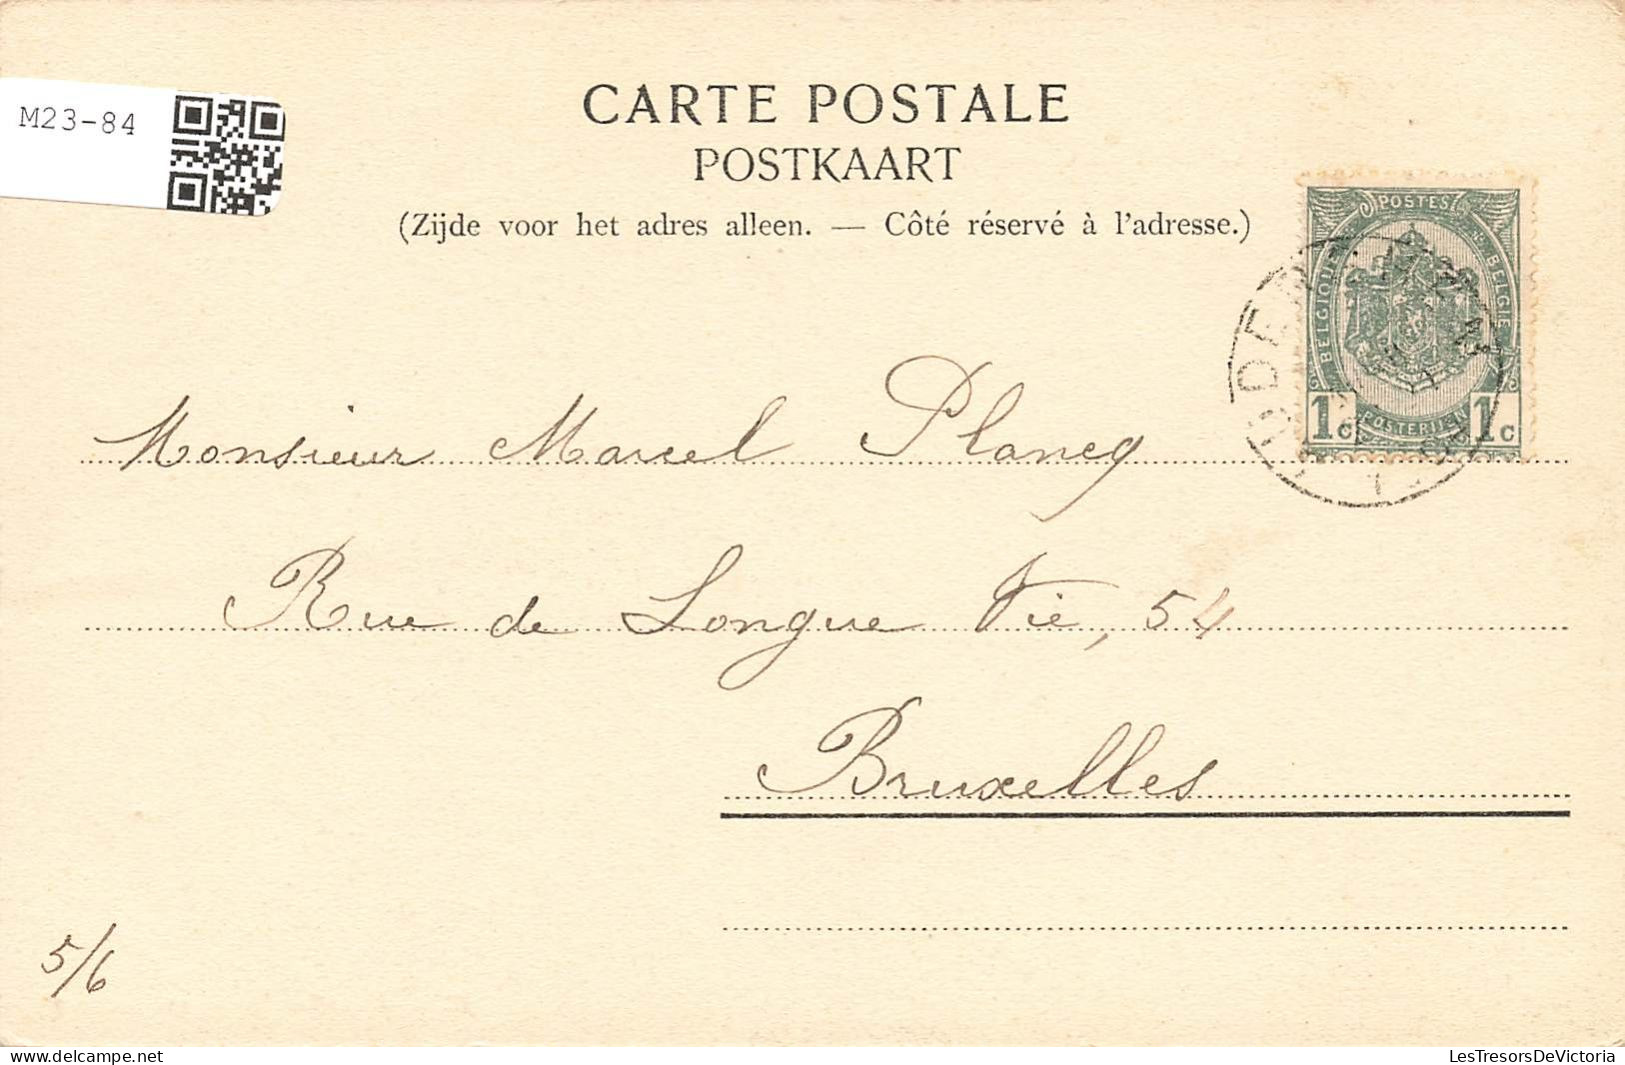 M23-84
CARTE POSTALE
POSTKAART
(Zijde voor het adres alleen. — Côté réservé à l'adresse.)
POSTES
BELGIQUE
BELGIE
1c
POSTERIJEN
1c
Monsieur Marcel Plancq
Rue de Longue Vie, 54
Bruxelles
5/6
www.delcampe.net
LesTresorsDeVictoria